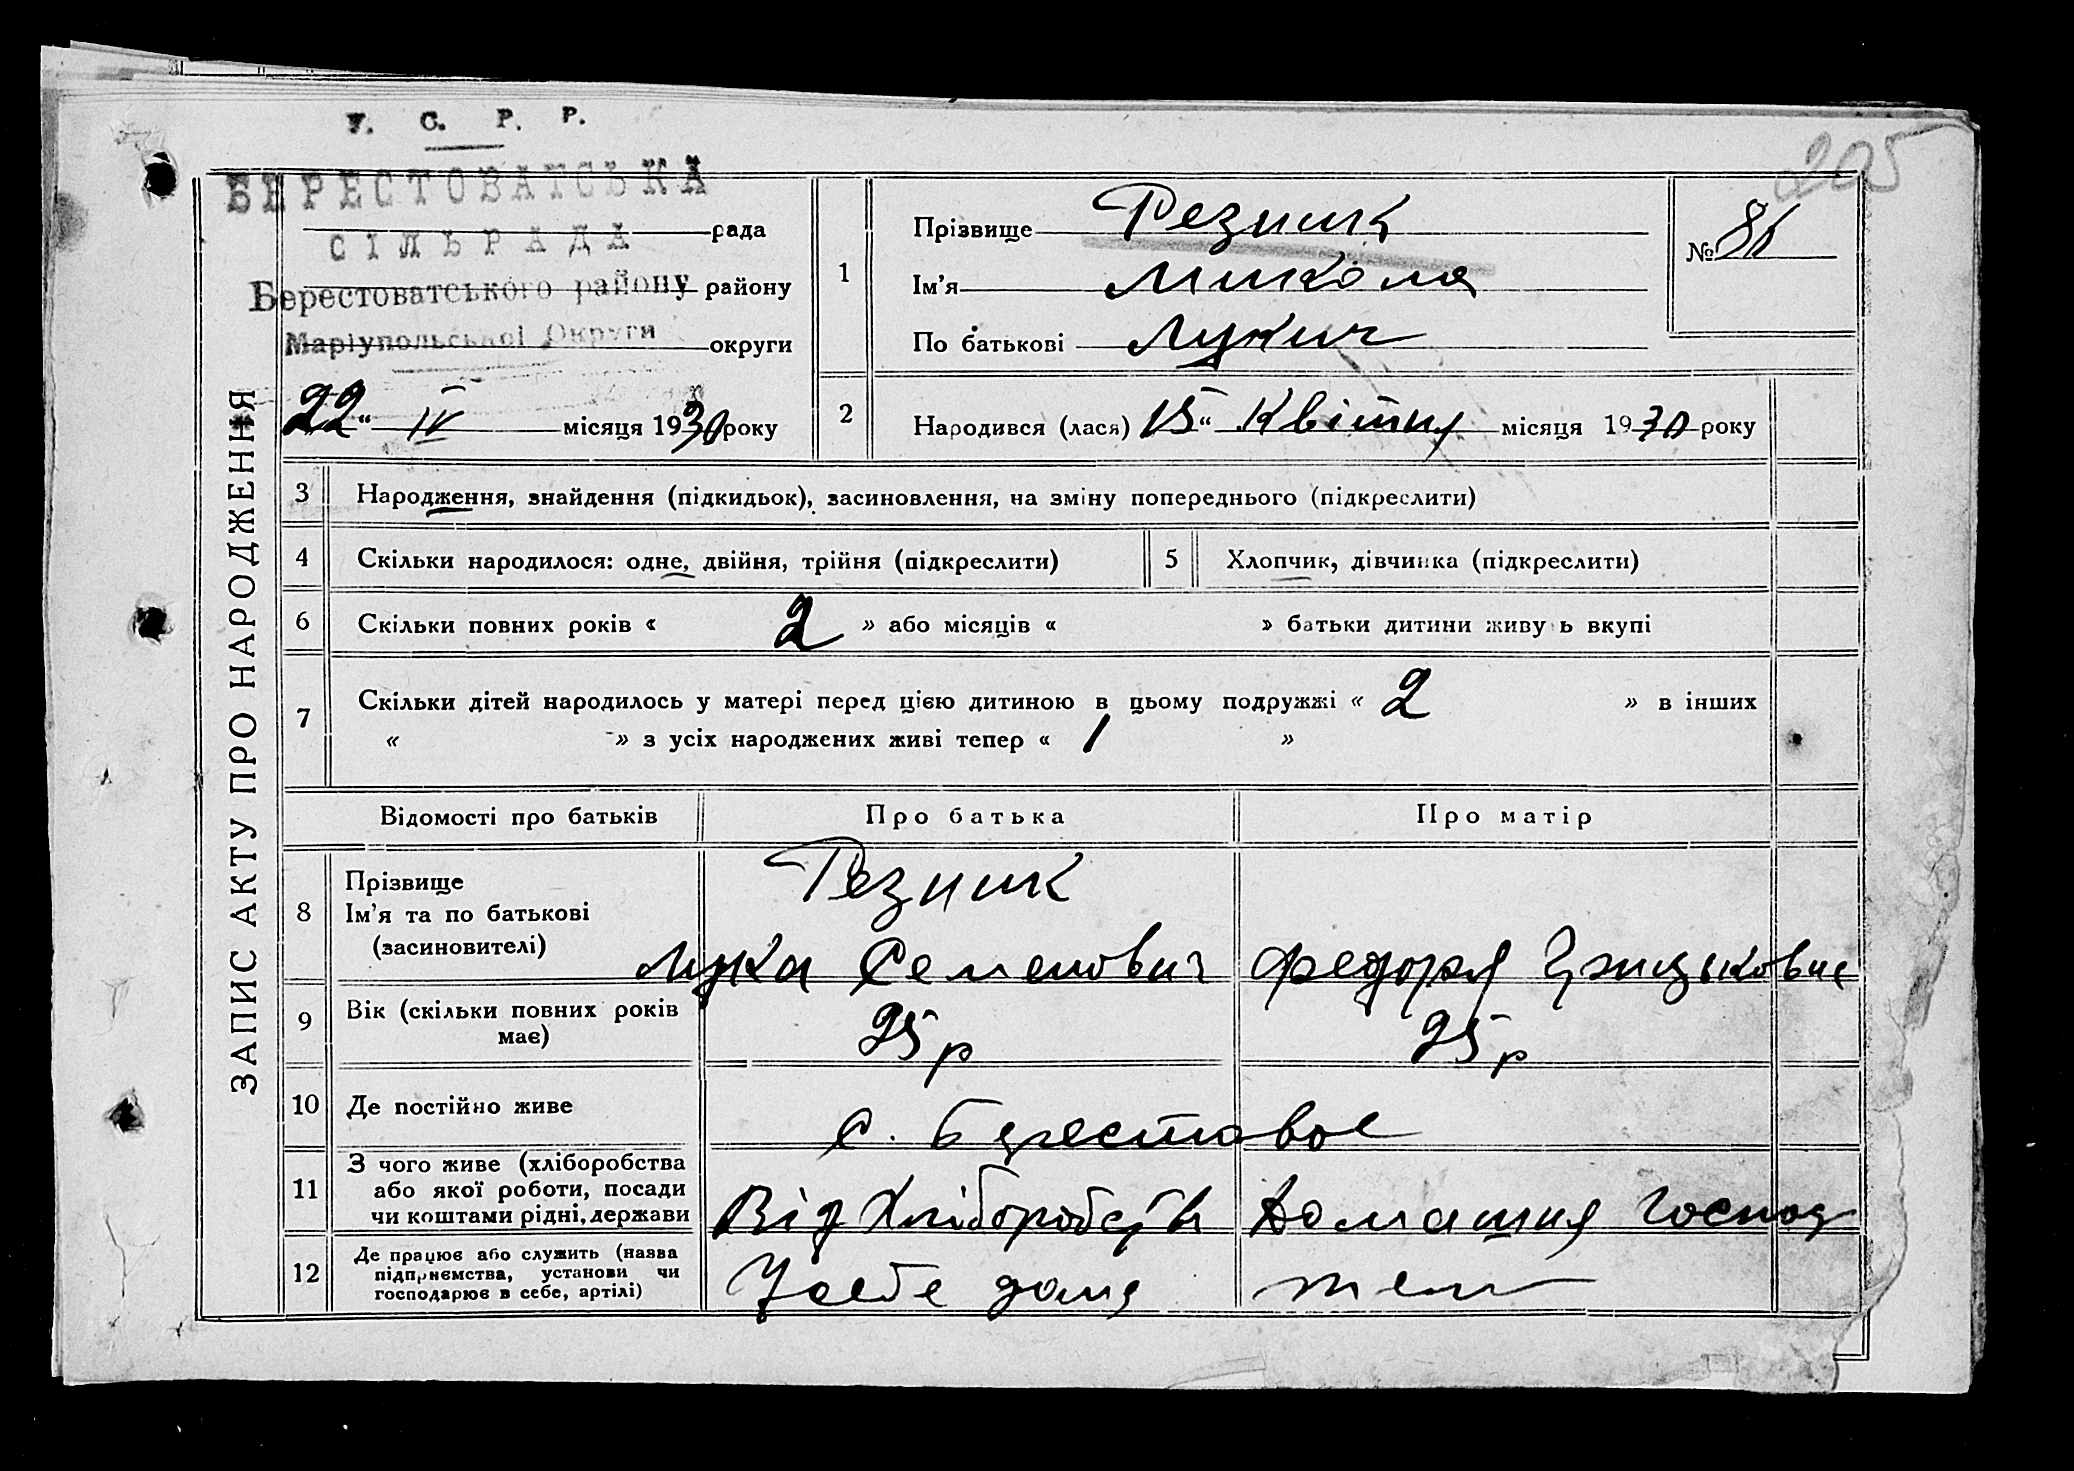 У. С. Р. Р.
205
БЕРЕСТОВАТСЬКА
СІЛЬРАДА рада
Берестоватського району району
Маріупольської Округи округи
22 " IV місяця 1930 року
ЗАПИС АКТУ ПРО НАРОДЖЕННЯ
1 Прізвище Резник
Ім'я Микола
По батькові Лукич
№
2 Народився (лася) 15 " Квітня місяця 1930 року
3 Народження, знайдення (підкидьок), засиновлення, на зміну попереднього (підкреслити)
4 Скільки народилося: одне, двійня, трійня (підкреслити)
5 Хлопчик, дівчинка (підкреслити)
6 Скільки повних років « 2 » або місяців « » батьки дитини живуть вкупі
7 Скільки дітей народилось у матері перед цією дитиною в цьому подружжі « 2 » в інших
« » з усіх народжених живі тепер « 1 »
Відомості про батьків Про батька Про матір
8 Прізвище
Ім'я та по батькові
(засиновителі)
Резник
Лука Семенович Федора
9 Вік (скільки повних років
має)
25 р 25 р
10 Де постійно живе с. Берестовое
11 З чого живе (хліборобства
або якої роботи, посади
чи коштами рідні, держави
Від Хліборобств Домашня господ
12 Де працює або служить (назва
підприємства, установи чи
господарює в себе, артілі)
У себе дома